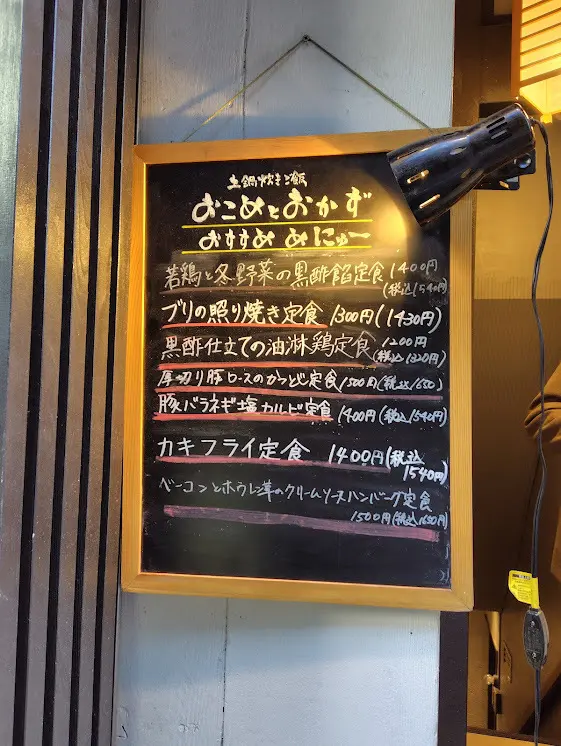 土鍋炊きご飯
おこめとおかず
おすすめめにゅー
若鶏と冬野菜の黒酢餡定食 1400円
(税込1540円)
ブリの照り焼き定食 1300円(1430円)
黒酢仕立ての油淋鶏定食 1200円
(税込1320円)
厚切り豚ロースのかつとじ定食 1500円(税込1650)
豚バラネギ塩カルビ定食 1400円(税込1540円)
カキフライ定食 1400円(税込
1540円)
ベーコンとホウレン草のクリームソースハンバーグ定食
1500円(税込1650円)